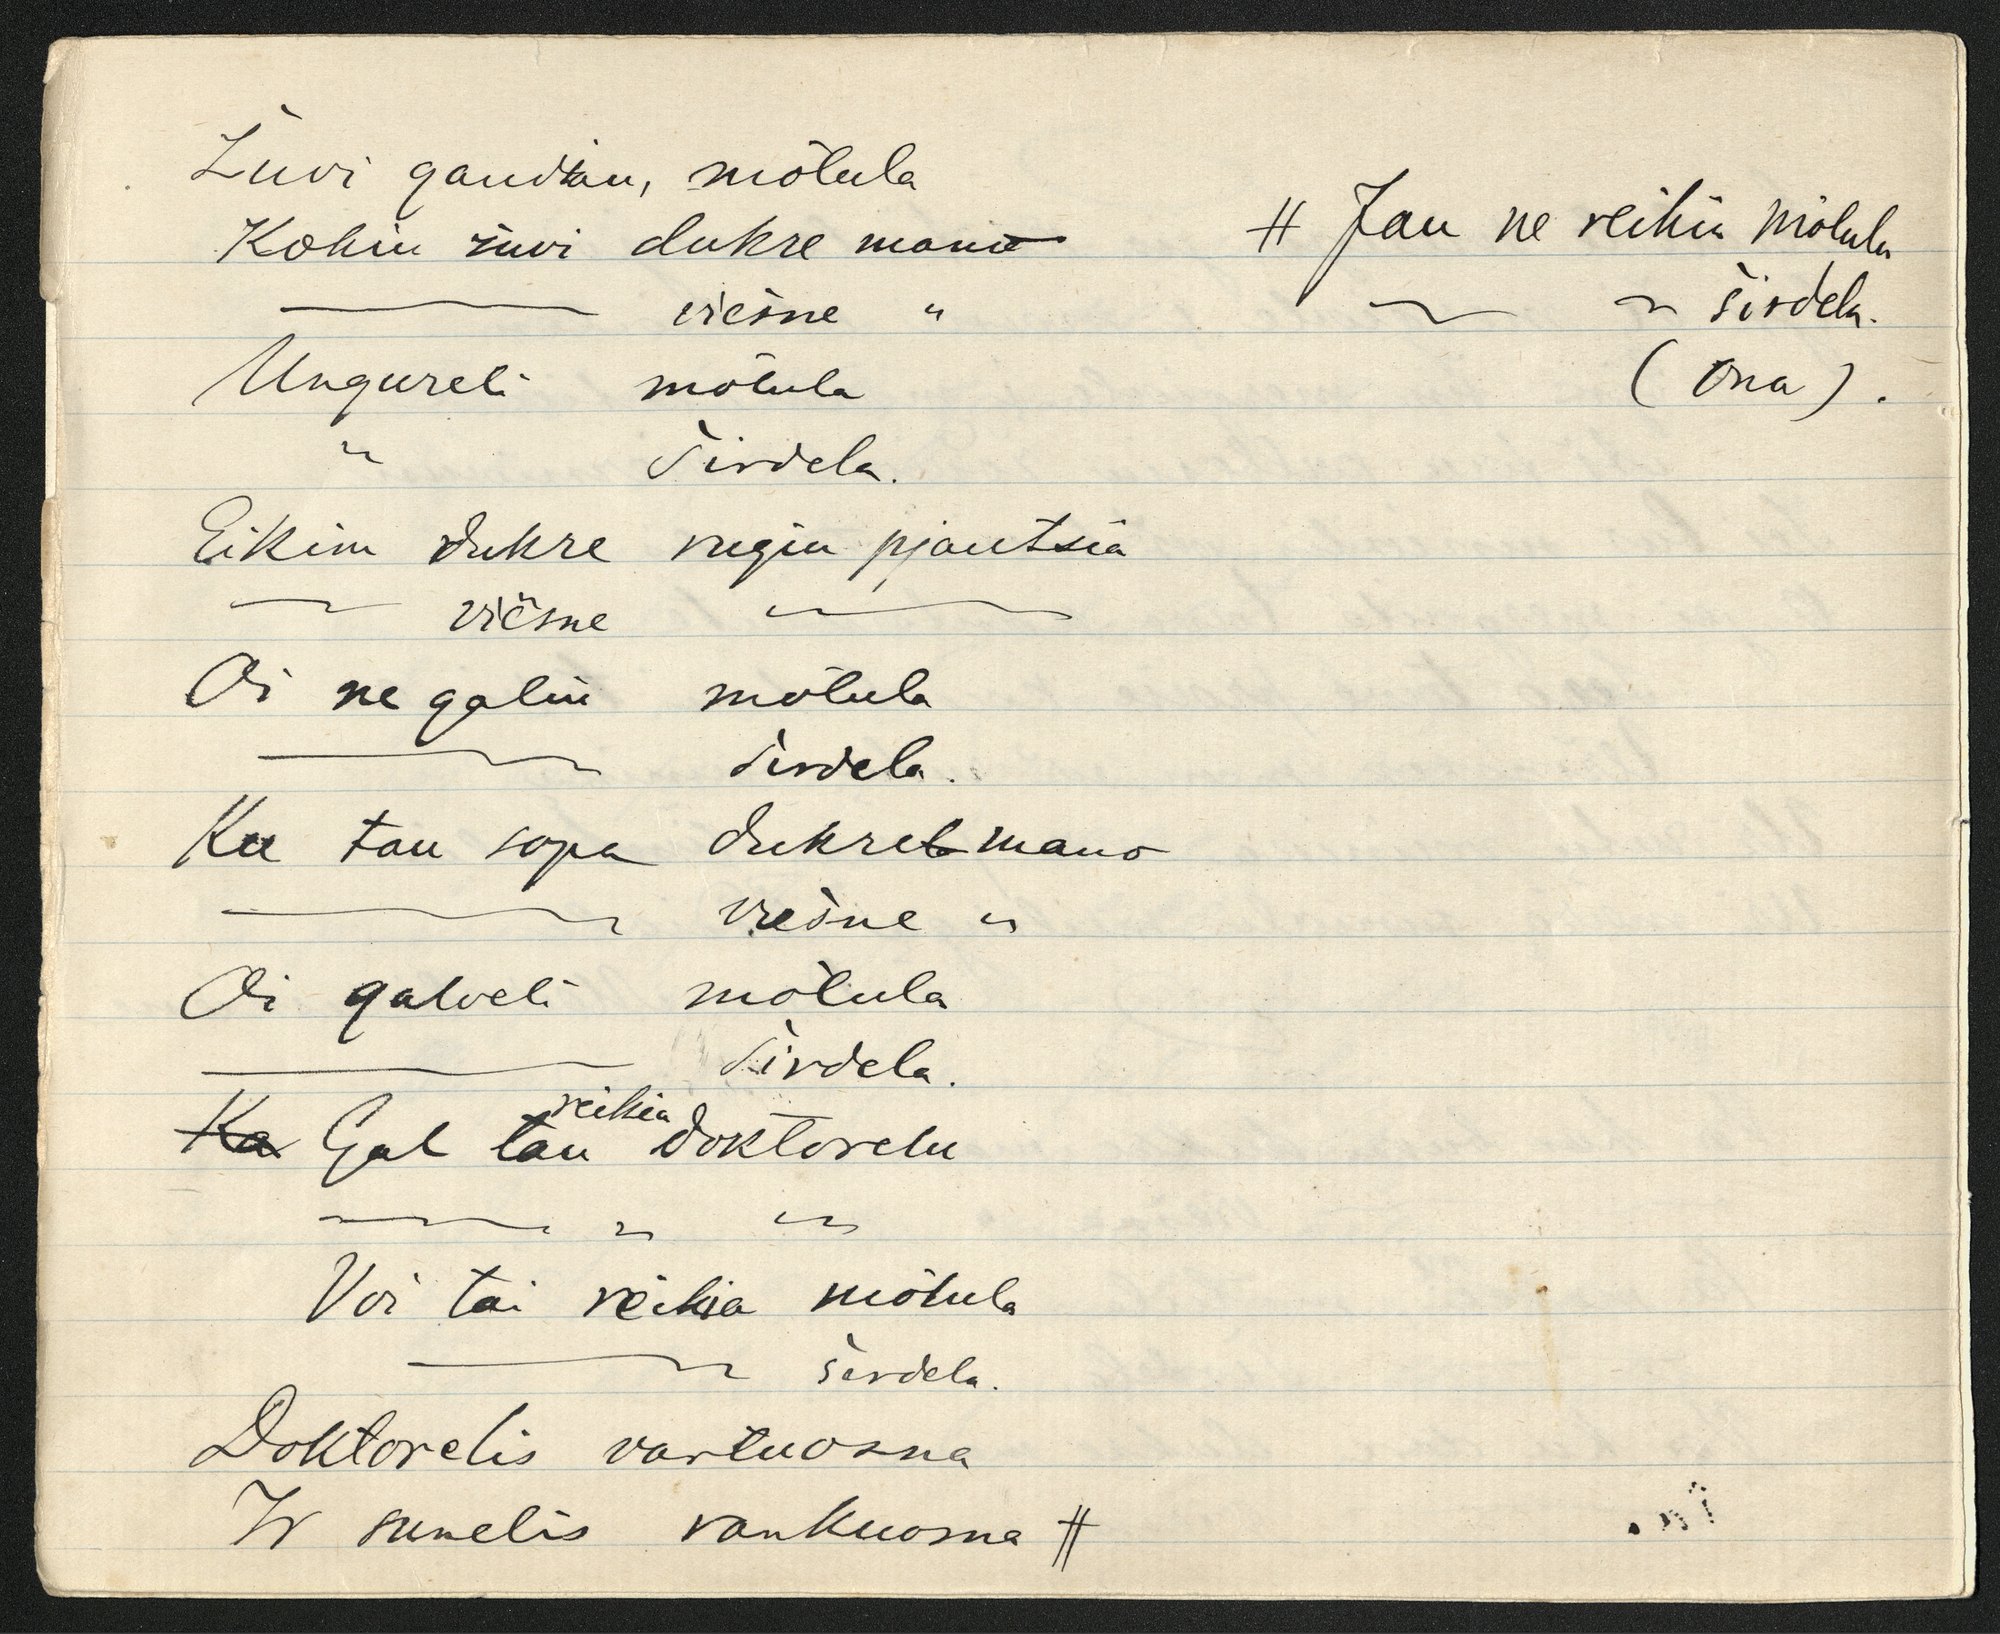 Žuvi gaudžiau, môtula
Kokiu žuvi dukre mano
——— viešne "
Ungureli môtula
" širdela.
Eikim dukre rugiu pjautsia
— viešne ———
Oi ne galiu môtula
——— širdela.
Ku tau sopa dukre mano
——— viešne "
Oi galveli môtula
——— širdela.
Gal tau reikia doktorelu
—— " "
Voi tai reikia môtula
——— širdela.
Doktorelis vartuosna
Ir sunelis rankuosna #
# Jau ne reikia môtula
— " širdela.
(Ona).